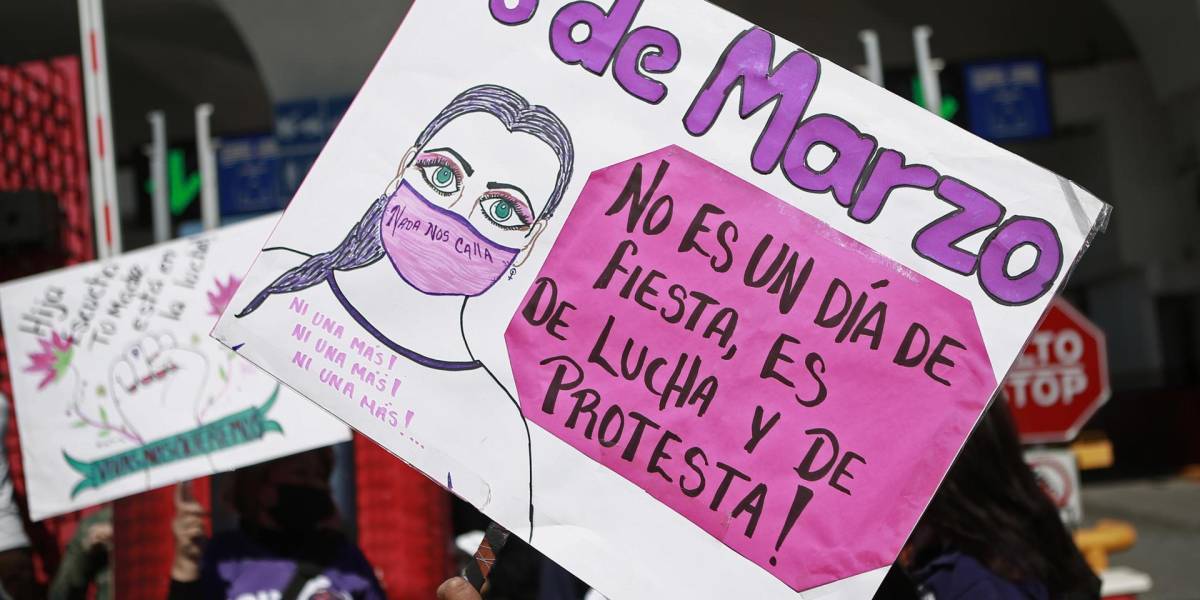 de Marzo
No es un día de
fiesta, es
de lucha y de
protesta!
NADA NOS CAllA
NI UNA MÁS!
NI UNA MÁS!
NI UNA MÁS!...
Hija
escucha
tú madre
está en
la lucha
VIVAS NOS QUEREMOS
ALTO
STOP